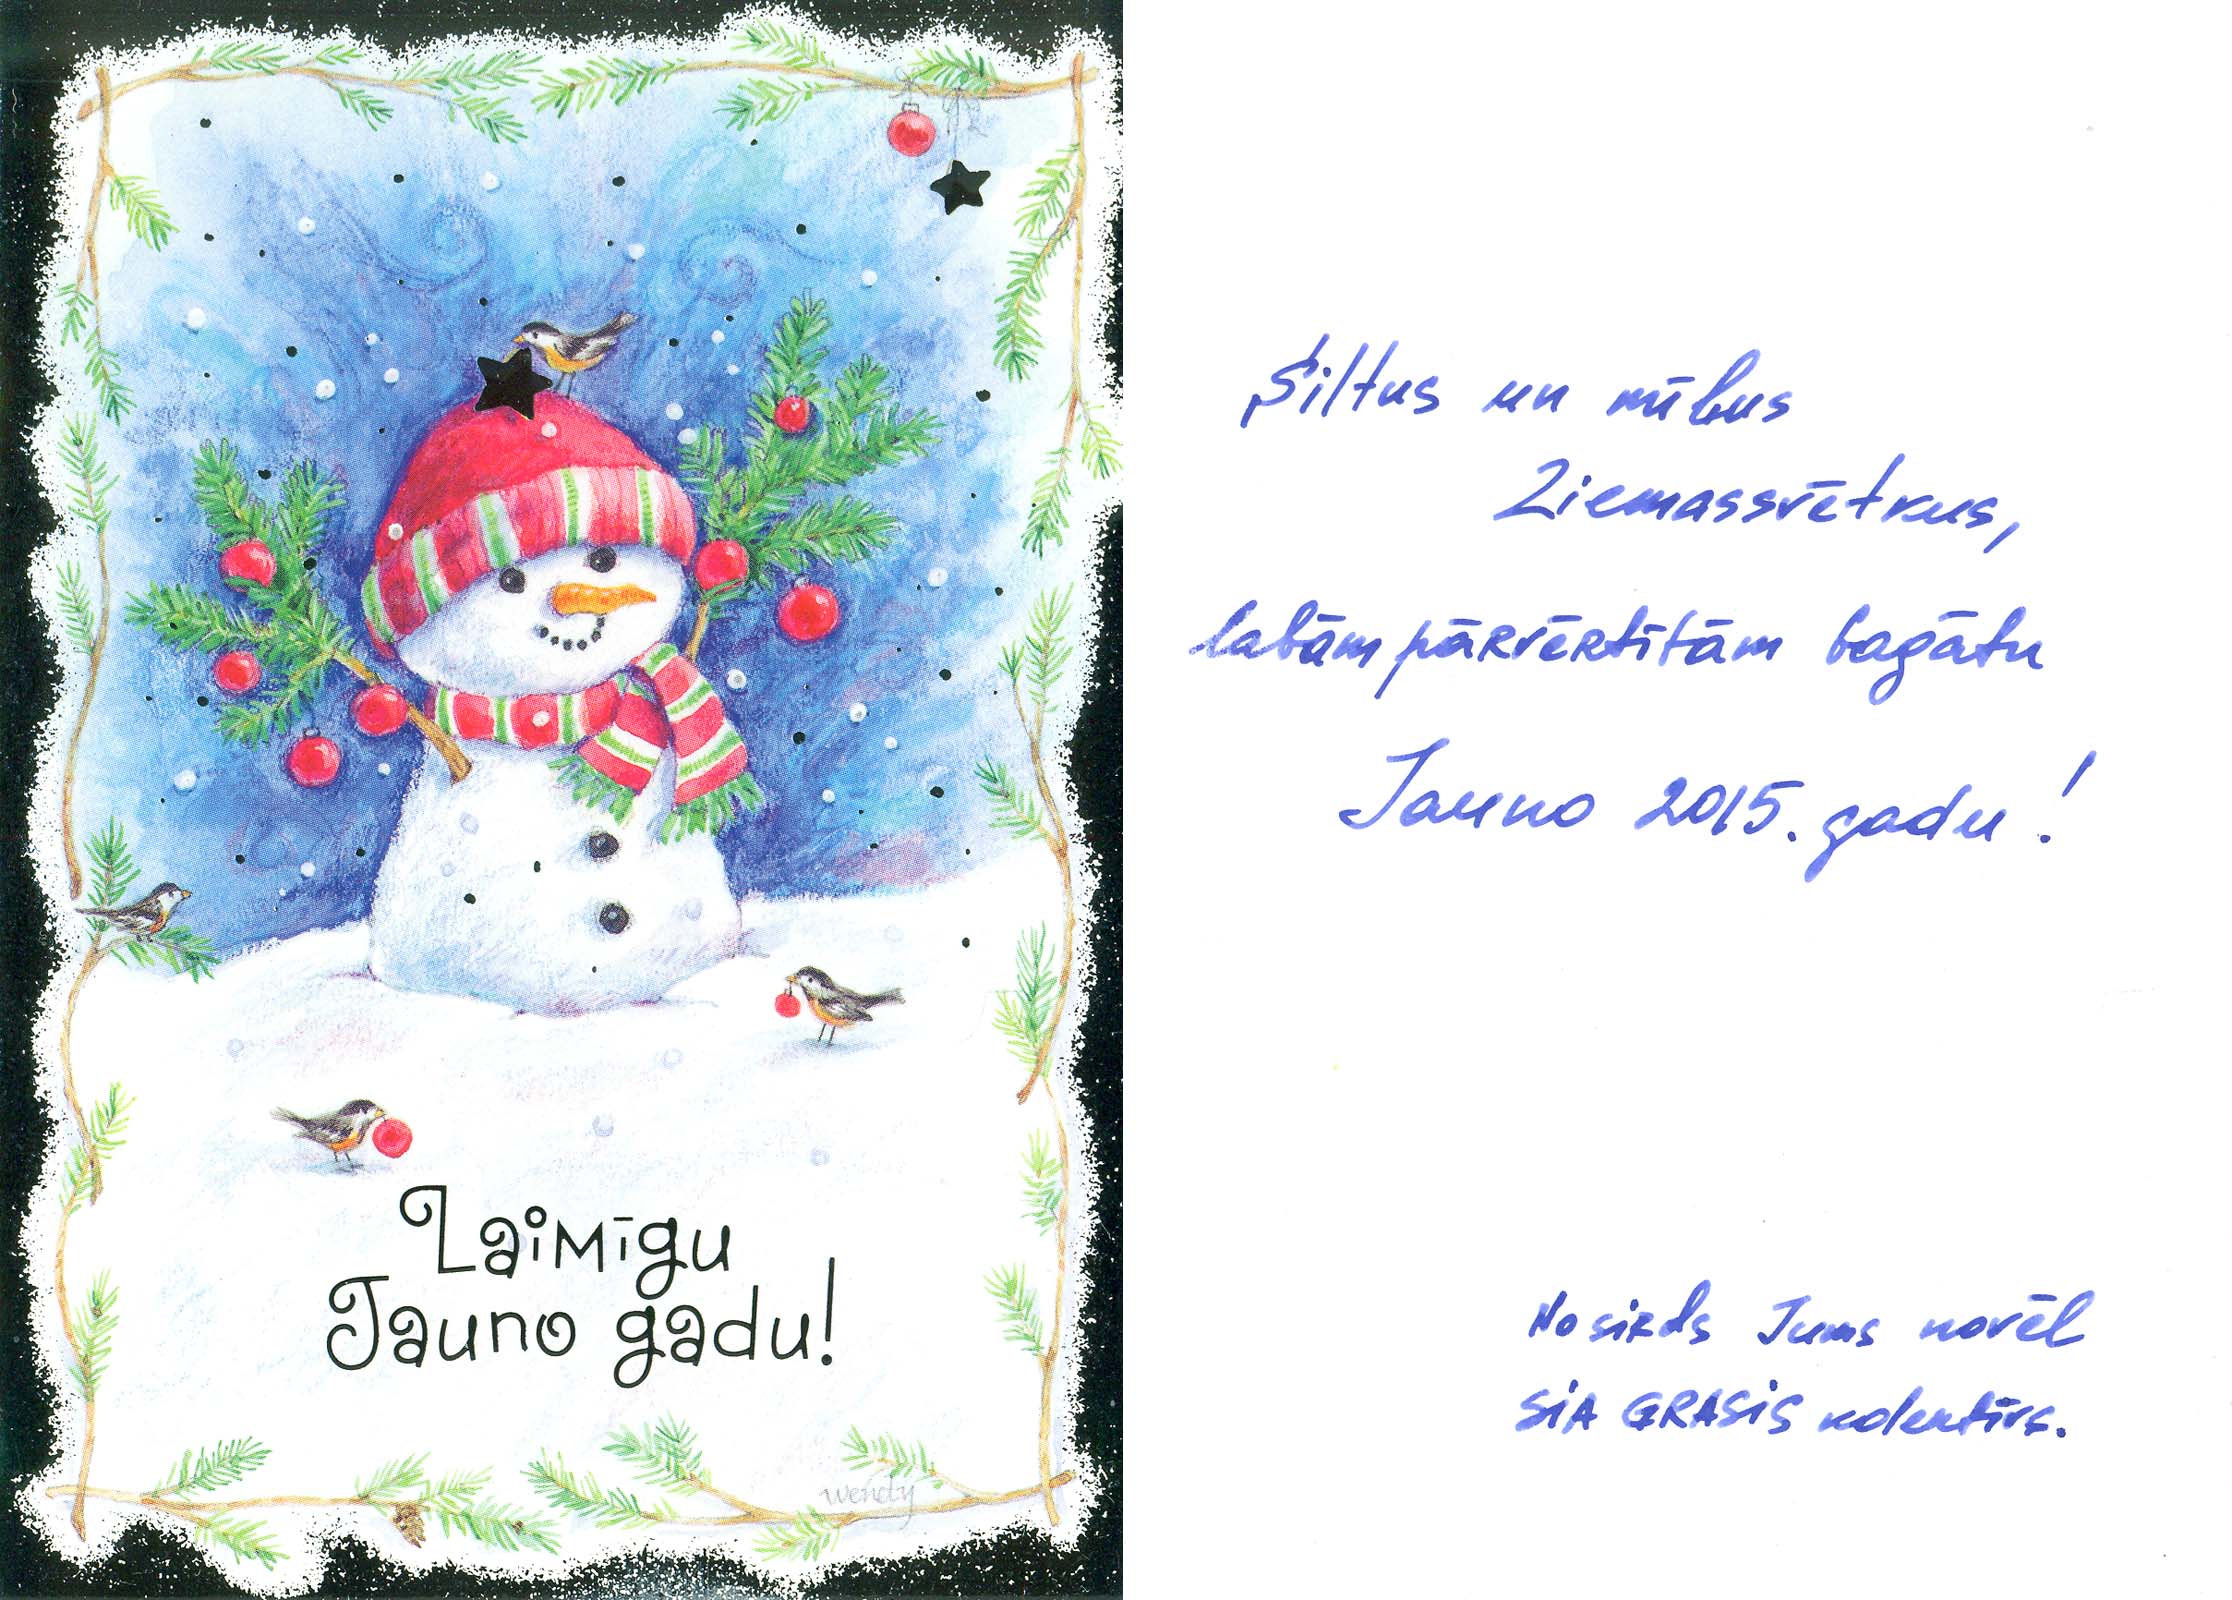 Laimīgu
Jauno gadu!
wendy
Siltus un mīļus
Ziemassvētkus,
labām pārvērtībām bagātu
Jauno 2015. gadu!
No sirds Jums novēl
SIA GRASIS kolektīvs.